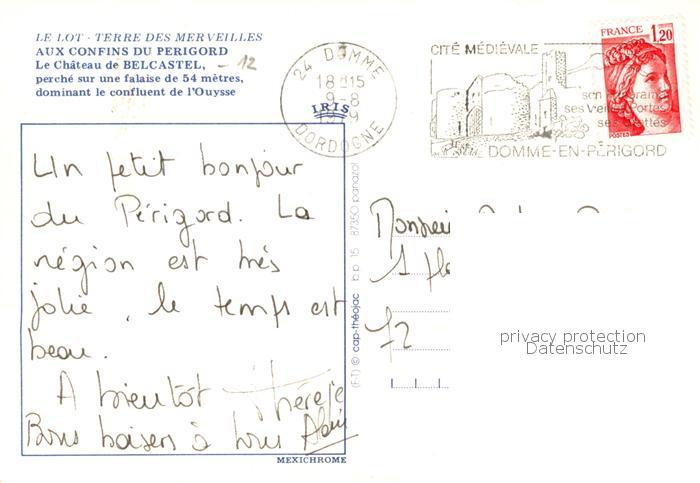 LE LOT - TERRE DES MERVEILLES
AUX CONFINS DU PERIGORD
Le Château de BELCASTEL, - 12
perché sur une falaise de 54 mètres,
dominant le confluent de l'Ouysse
24 DOMME
18 H15
9-8
DORDOGNE
IRIS
CITÉ MÉDIÉVALE
son panorama
ses Vieilles Portes
ses Grottes
DOMME-EN-PÉRIGORD
FRANCE 1,20
POSTES
Un petit bonjour
du Périgord. La
région est très
jolie, le temps est
beau.
A bientôt Thérèse
Bons baisers à tous Alain
MEXICHROME
(F-T) © cap-théojac b.p. 15 87350 panazol
Monsieur
1
72
privacy protection
Datenschutz